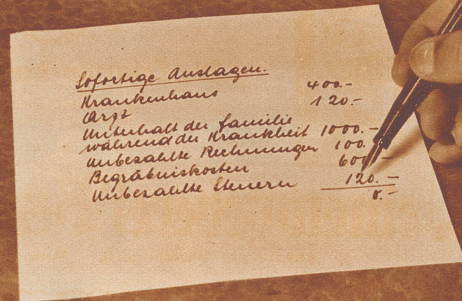 Sofortige Auslagen.
Krankenhaus 400.-
Arzt 120.-
Unterhalt der Familie
während der Krankheit 1000.-
Unbezahlte Rechnungen 100.-
Begräbniskosten 600.-
Unbezahlte Steuern 120.-